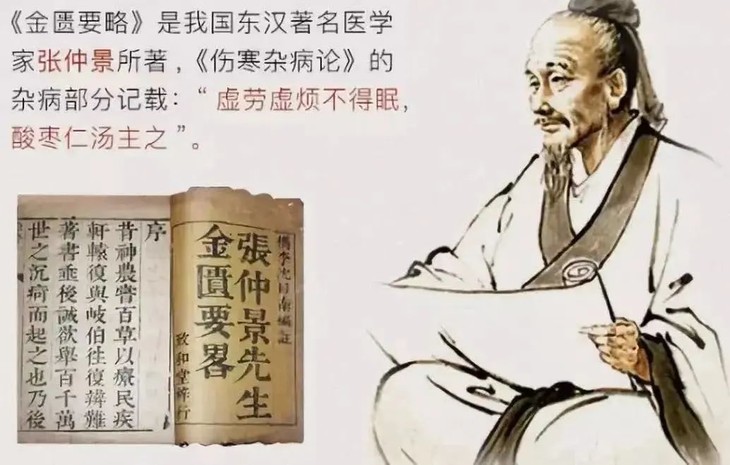 《金匮要略》是我国东汉著名医学
家张仲景所著，《伤寒杂病论》的
杂病部分记载：“虚劳虚烦不得眠，
酸枣仁汤主之”。
檇李沈目南編註
張仲景先生
金匱要畧
致和堂梓行
序
昔神農嘗百草以療民疾
軒轅復與岐伯徃復辯難
著書垂後誠欲舉百千萬
世之沉疴而起之也乃後